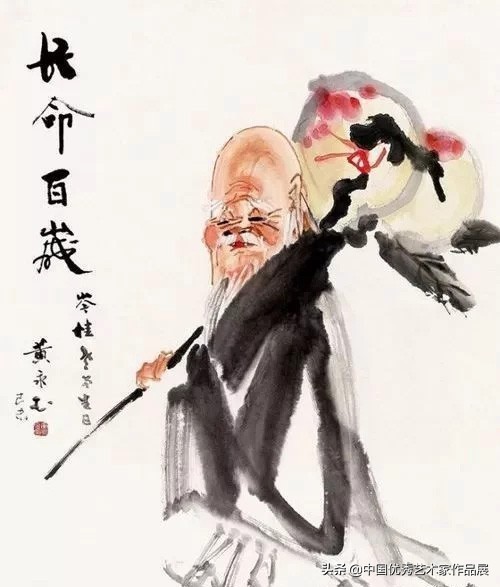 长命百歲
生日
黄永玉
头条 @中国优秀艺术家作品展